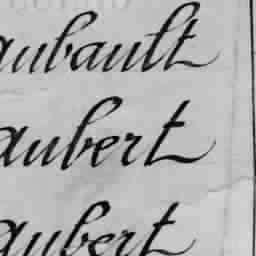 aubault
aubert
aubert